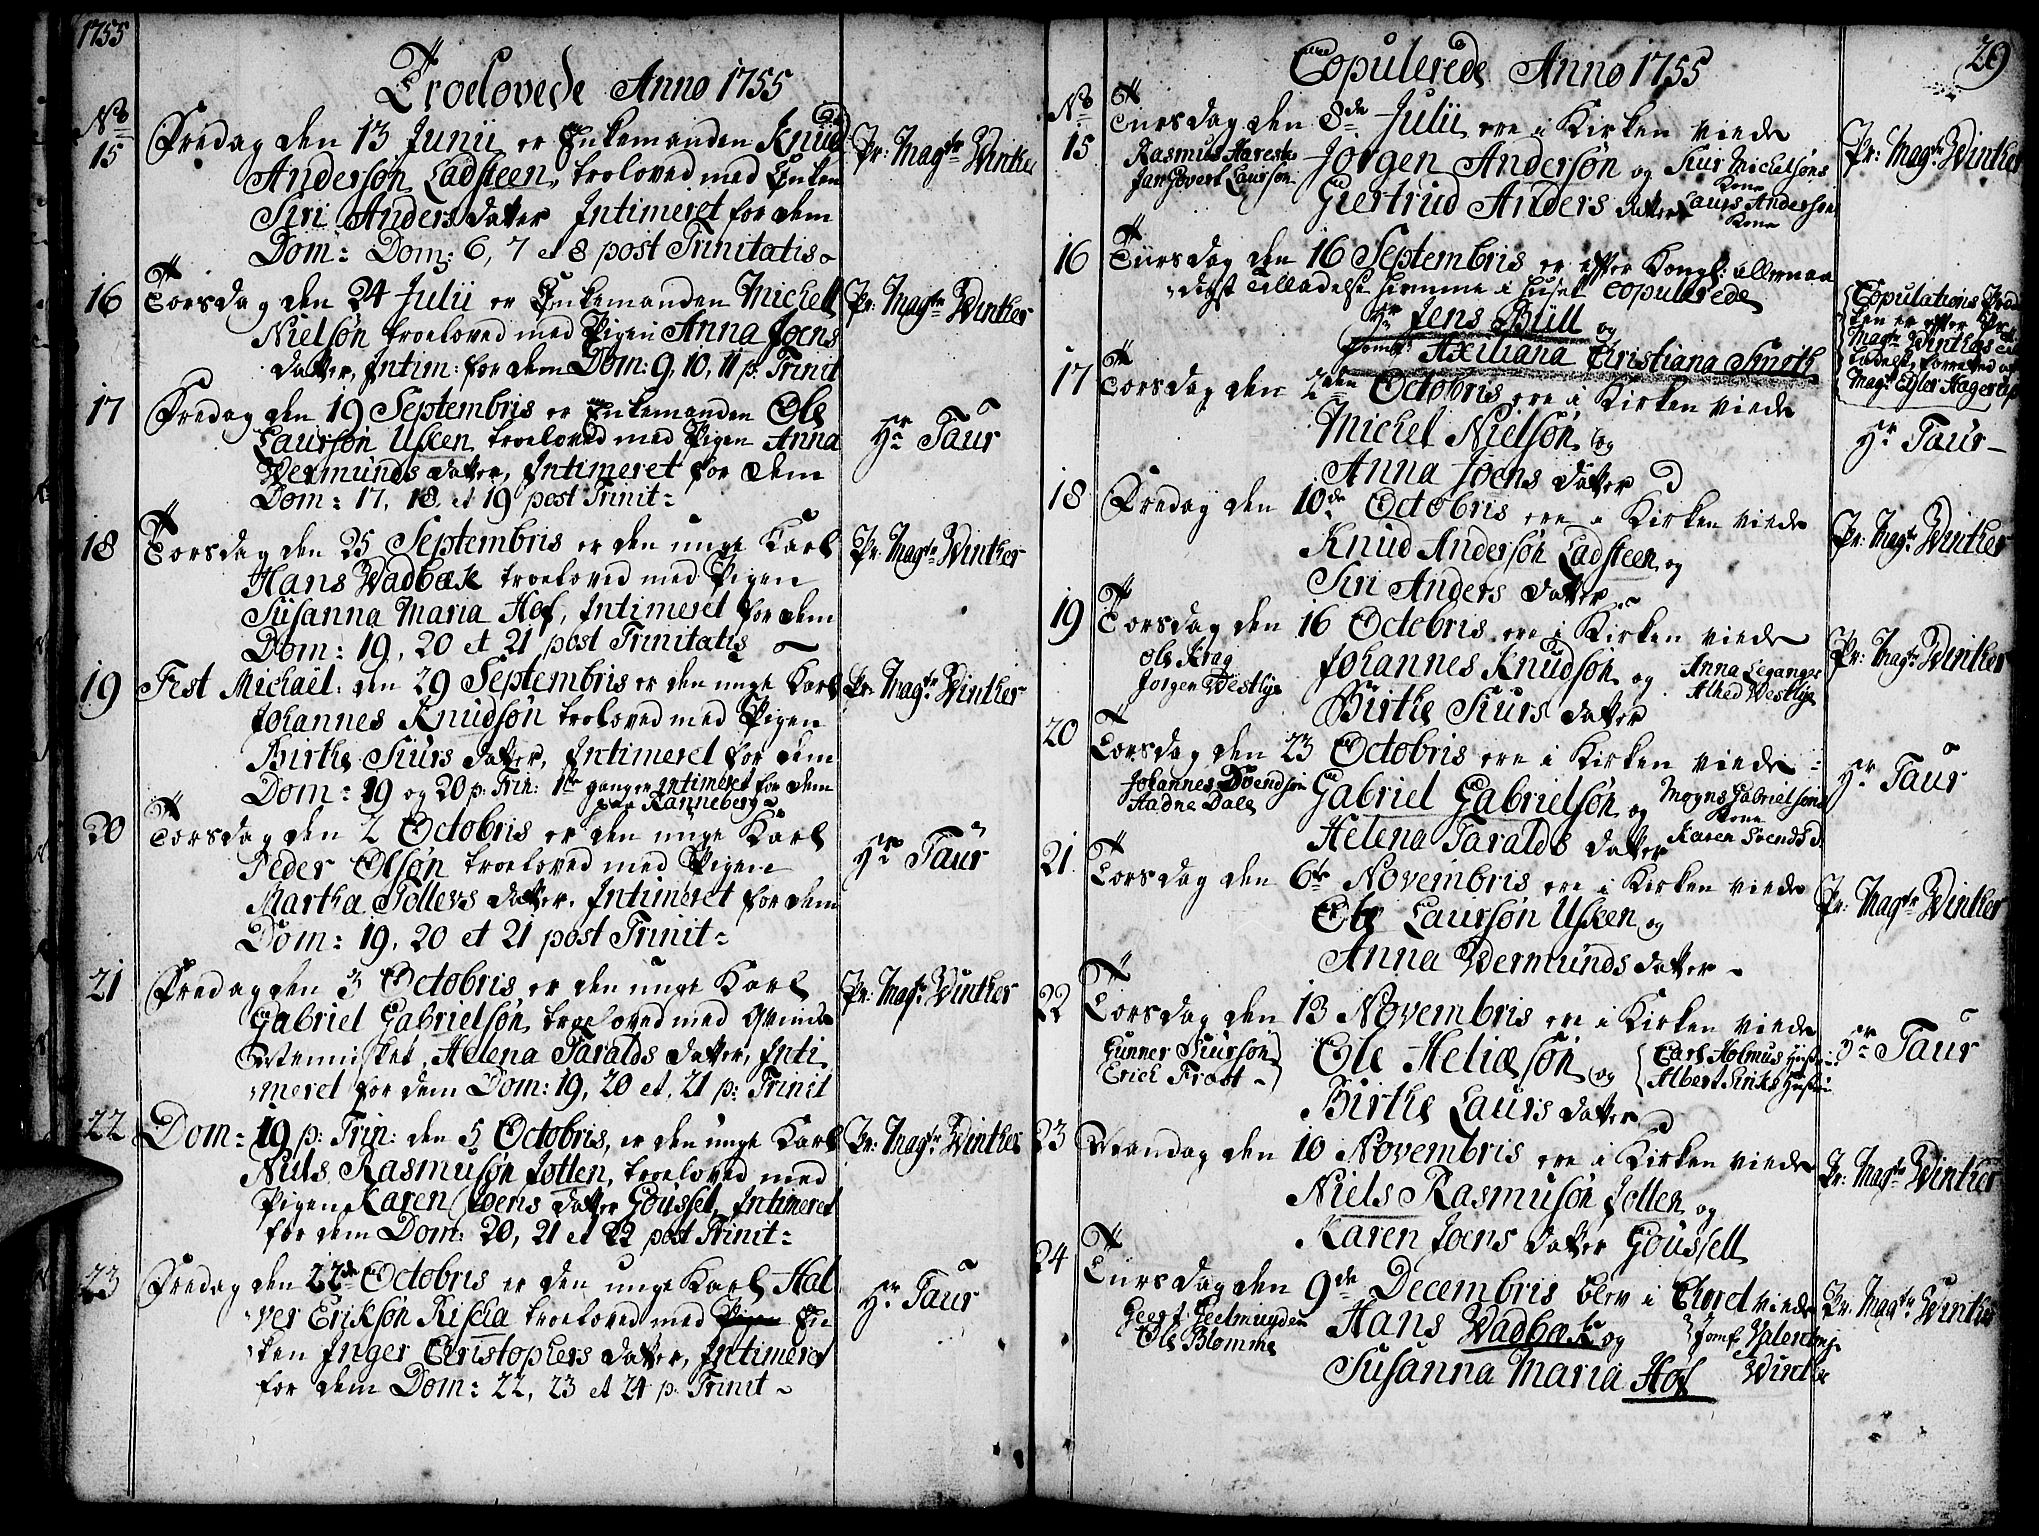 1755
Troelovede Anno 1755
No
15
Fredag den 13 Junii er Enkemanden Knud
Andersøn Ladsteen, troloved med Enken
Siri Anders datter Intimeret for dem
Dom: Dom: 6, 7 et 8 post Trinitatis
Pr: Magr Winther
16
Torsdag den 24 Julii er Enkemanden Michell
Nielsøn troeloved med Pigen Anna Joens
datter, Intim: for dem Dom: 9, 10, 11 p. Trinit
Pr: Magr Winther
17
Fredag den 19 Septembris er Enkemanden Ole
Laursøn Usken troeloved med Pigen Anna
Wermunds datter, Intimeret for dem
Dom: 17, 18 et 19 post Trinit:
Hr Taur
18
Torsdag den 25 Septembris er den unge Karl
Hans Wadbæk troeloved med Pigen
Susanna Maria Hof, Intimeret for dem
Dom: 19, 20 et 21 post Trinitatis
Pr: Magr Winther
19
Fest Michaël: den 29 Septembris er den unge Karl
Johannes Knudsøn troloved med Pigen
Birthe Siurs datter, Intimeret for dem
Dom: 19 og 20 p: Trin: 1te gangen intimeret for dem
paa Ranneberg
Pr: Magr Winther
20
Torsdag den 2 Octobris er den unge Karl
Peder Olsøn troeloved med Pigen
Martha Tollevs datter, Intimeret for dem
Dom: 19, 20 et 21 post Trinit:
Hr Taur
21
Fredag den 3 Octobris er den unge Karl
Gabriel Gabrielsøn troeloved med Qvinde
Mennisket Helena Taralds datter, Inti
meret for dem Dom: 19, 20 et 21 p: Trinit
Pr: Magr Winther
22
Dom: 19 p: Trin: den 5 Octobris, er den unge Karl
Niels Rasmusøn Jotten, troeloved med
Pigen Karen Joens datter Goussel, Intimeret
for dem Dom: 20, 21 et 22 post Trinit:
Pr: Magr Winther
23
Fredag den 22de Octobris er den unge Karl Hal
ver Eriksøn Riska troeloved med Pigen En
ken Inger Christophers datter, Intimeret
for dem Dom: 22, 23 et 24 p. Trinit
Hr Taur
29
Copulerede Anno 1755
No
15
Tirsdag den 8de Julii ere i Kirken viede
Rasmus Harestes
Jan Govert Laursøn
Jørgen Andersøn og
Giertrud Anders datter
Siur Michelsøns
Kone
Laurs Andersøns
Kone
Pr: Magr Winther
16
Tiirsdag den 16 Septembris er efter Kongl: allernaa
digst Tilladelse hiemme i Huset Copulerede
Hr Jens Blill og
Jomfr Axiliana Christiana Smith
Copulations
ten er efter Pr:
Magr Winthers Til
ladelse forretted af
Magr Eyler Hagerup
17
Torsdag den 2den Octobris ere i Kirken viede
Michel Nielsøn og
Anna Joens datter
Hr Taur
18
Fredag den 10de Octobris ere i Kirken viede
Knud Andersøn Ladsteen og
Siri Anders datter
Pr: Magr Winther
19
Torsdag den 16 Octobris ere i Kirken viede
Ole Krag
Jørgen Westlye
Johannes Knudsøn og
Birthe Siurs datter
Anna Leganger
Alhed Westlye
Pr: Magr Winther
20
Torsdag den 23 Octobris ere i Kirken viede
Johannes Svendsøn
Aadne Dale
Gabriel Gabrielsøn og
Helena Taralds datter
Mogns Gabrielsøns
Kone
Karen Svends D
Hr Taur
21
Torsdag den 6te Novembris ere i Kirken viede
Ole Laursøn Usken og
Anna Wermunds datter
Pr: Magr Winther
22
Torsdag den 13 Novembris ere i Kirken viede
Gunner Siursøn
Erick Frost
Ole Heliæsøn og
Birthe Laurs datter
Carl Holmus Hustr:
Albert Siriks Hustr:
Hr Taur
23
Mandag den 10 Novembris ere i Kirken viede
Niels Rasmusøn Jotten og
Karen Joens datter Goussell
Pr: Magr Winther
24
Tirsdag den 9de Decembris blev i Choret viede
Geert Geelmuyden
Ole Blomme
Hans Wadbæk og
Susanna Maria Hof
Jomf Valentine
Winther
Pr: Magr Winther